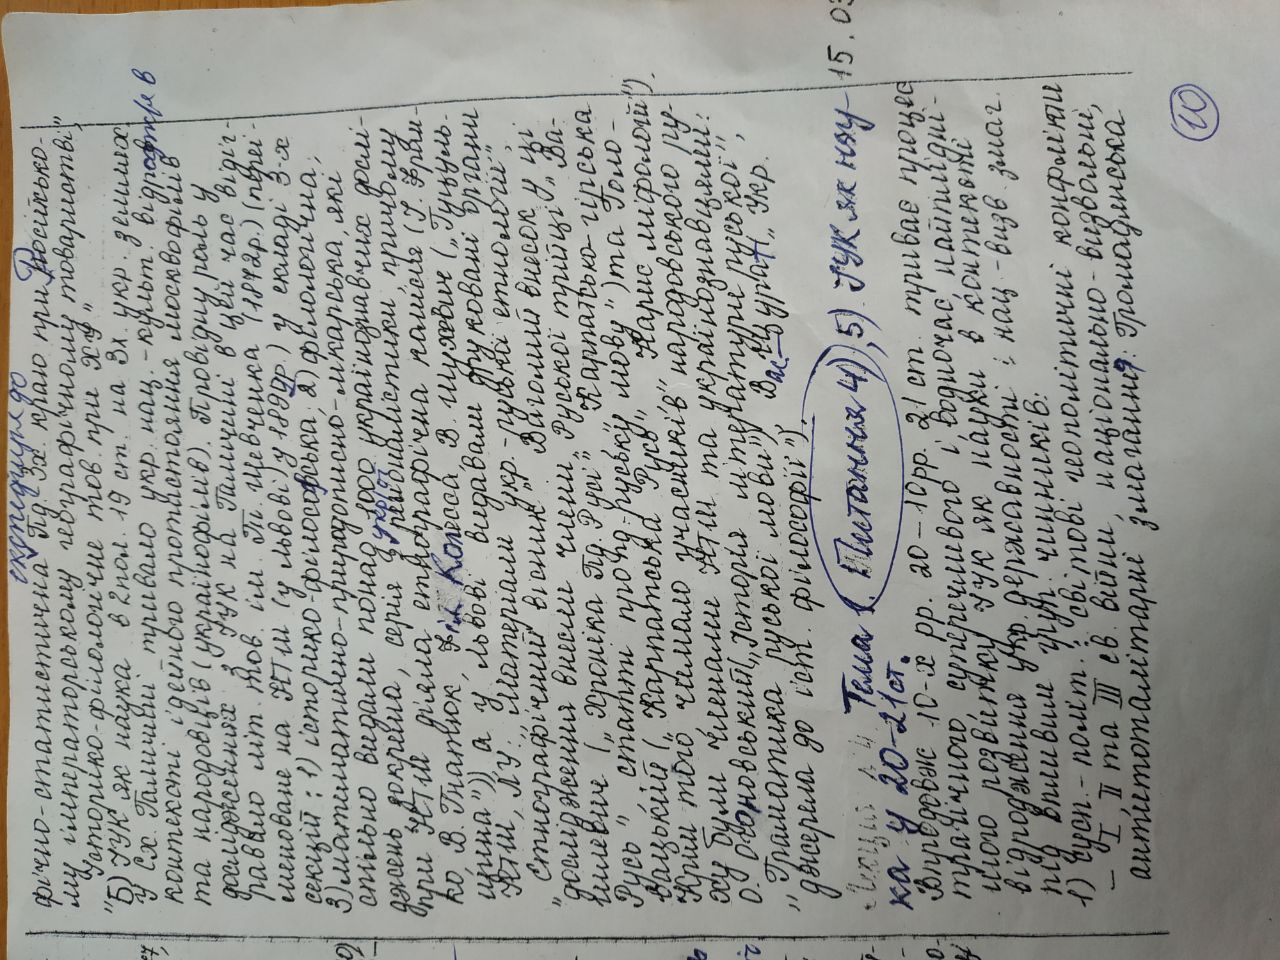 експедиція до
фічно-статистична Пд.-Зх. краю при Російсько-
му імператорському географічному товаристві",
"Історико-філологічне тов. при ХУ"
Б) ІУК як наука в 2 пол. 19 ст. на Зх. укр. землях
У Сх. Галичині тривало укр. нац.-культ. відродж-я в
контексті ідейного протистояння москвофілів
та народовців (українофілів). Провідну роль у
дослідженнях з ІУК на Галичині в цей час відіг-
равало літ. тов. ім. Т. Шевченка (1872р.) (переі-
меноване на НТШ (у Львові) у 1892р.) у складі 3-х
секцій: 1) історико-філософська; 2) філологічна;
3) математично-природописно-лікарська, які
спільно видали понад 1000 українознавчих дослі-
джень, зокрема, серія з укр-ої регіоналістики, причому
при НТШ діяла етнографічна комісія (І. Фран-
ко, В. Гнатюк, Філ. Колесса, В. Шухевич („Гуцуль-
щина")), а у Львові видавали друковані органи
НТШ, ЛУ: „Матеріали укр.-руської етнології",
„Етнографічний вісник". Вагомий внесок у ці
дослідження внесли члени „Руської трійці" Ва-
гилевич („Хроніка Пд. Русі", „Карпатсько-гірська
Русь", „статті про пд.-руську мову") та Голо-
вацький („Карпатська Русь", „Нарис міфології").
Крім того, чимало учасників народовського ру-
ху були членами НТШ та українознавцями:
О. Огоновський („Історія літератури руської",
„Граматика руської мови"), Вас. Щурат („Укр.
джерела до іст. філософії").
Лекція №4 Тема 1. Питання 4), 5) ІУК як нау- 15.03
ка у 20-21 ст.
Впродовж 10-х рр. 20 – 10 рр. 21 ст. триває процес
трагічного, суперечливого і, водночас, найплідні-
шого розвитку ІУК як науки в контексті
відродження укр. державності і нац.-визв. змаг.
під впливом груп чинників:
1) сусп.-політ.: світові геополітичні конфлікти
– І, ІІ та ІІІ св. війни, національно-визвольні,
антитоталітарні змагання: Громадянська
10